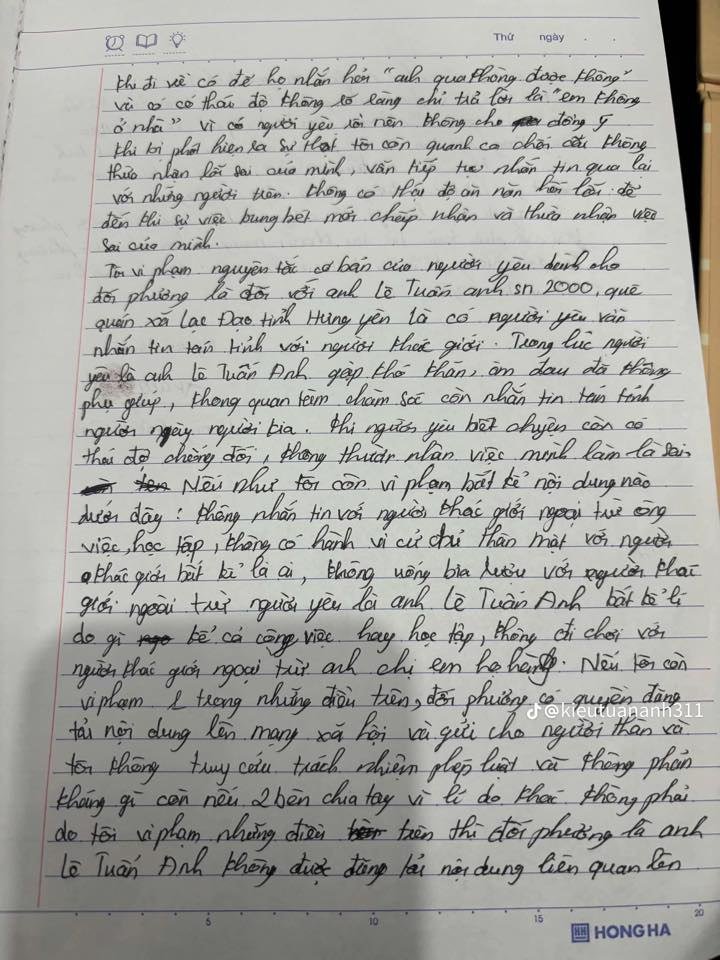 Thứ ngày . .
khi đi về có để họ nhắn hỏi "anh qua không được không"
và có có thái độ không rõ ràng chỉ trả lời là "em không
ở nhà" vì có người yêu rồi nên không cho đồng ý
khi bị phát hiện ra sự thật tôi còn quanh co chối cãi không
thừa nhận lỗi sai của mình, vẫn tiếp tục nhắn tin qua lại
với những người trên. không có thái độ ăn năn hối lỗi. để
đến khi sự việc bung bét mới chấp nhận và thừa nhận việc
sai của mình.
Tôi vi phạm nguyên tắc cơ bản của người yêu dành cho
đối phương là đối với anh Lê Tuấn anh sn 2000, quê
quán xã Lạc Đạo tỉnh Hưng yên là có người yêu vẫn
nhắn tin tán tỉnh với người khác giới. Trong lúc người
yêu là anh Lê Tuấn Anh gặp khó khăn, ốm đau đã không
phụ giúp, không quan tâm chăm sóc còn nhắn tin tán tỉnh
người này người kia. khi người yêu biết chuyện còn có
thái độ chống đối, không thừa nhận việc mình làm là sai
Nếu như tôi còn vi phạm bất kể nội dung nào
dưới đây: không nhắn tin với người khác giới ngoại trừ công
việc, học tập, không có hành vi cử chỉ thân mật với người
khác giới bất kể là ai, không uống bia rượu với người khác
giới ngoài trừ người yêu là anh Lê Tuấn Anh bất kể lí
do gì kể cả công việc hay học tập, không đi chơi với
người khác giới ngoại trừ anh chị em họ hàng. Nếu tôi còn
vi phạm 1 trong những điều trên, đối phương có quyền đăng
tải nội dung lên mạng xã hội và gửi cho người thân và
tôi không truy cứu trách nhiệm pháp luật và không phản
kháng gì còn nếu 2 bên chia tay vì lí do khác không phải
do tôi vi phạm những điều trên thì đối phương là anh
Lê Tuấn Anh không được đăng tải nội dung liên quan lên
@kieutuananh311
5 10 15 20
HH HONG HA